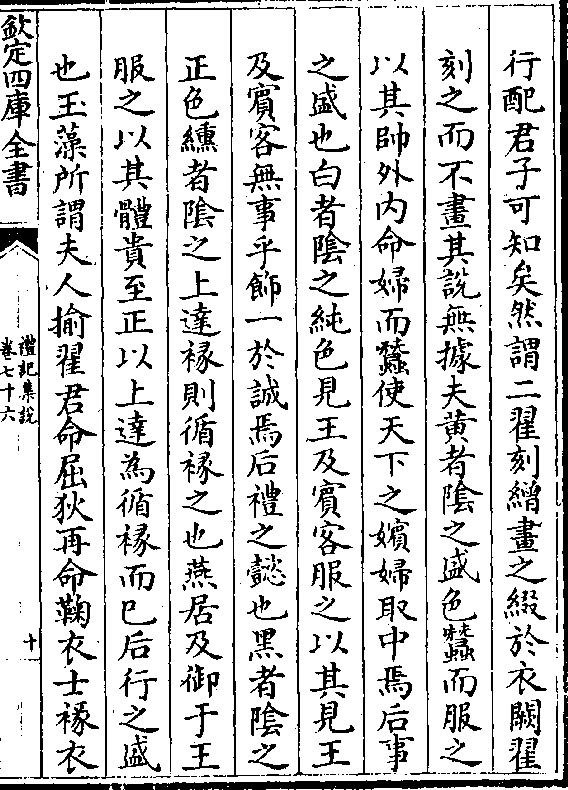 行配君子可知矣然謂二翟刻繒畫之綴於衣闕翟
刻之而不畫其說無據夫黄者陰之盛色蠶而服之
以其帥外内命婦而蠶使天下之嬪婦取中焉后事
之盛也白者陰之純色見王及賓客服之以其見王
及賓客無事乎飾一於誠焉后禮之懿也黑者陰之
正色纁者陰之上達褖則循褖之也燕居及御于王
服之以其體貴至正以上達為循褖而已后行之盛
也玉藻所謂夫人揄翟君命屈狄再命鞠衣士褖衣
欽定四庫全書
禮記集說
卷七十六
十